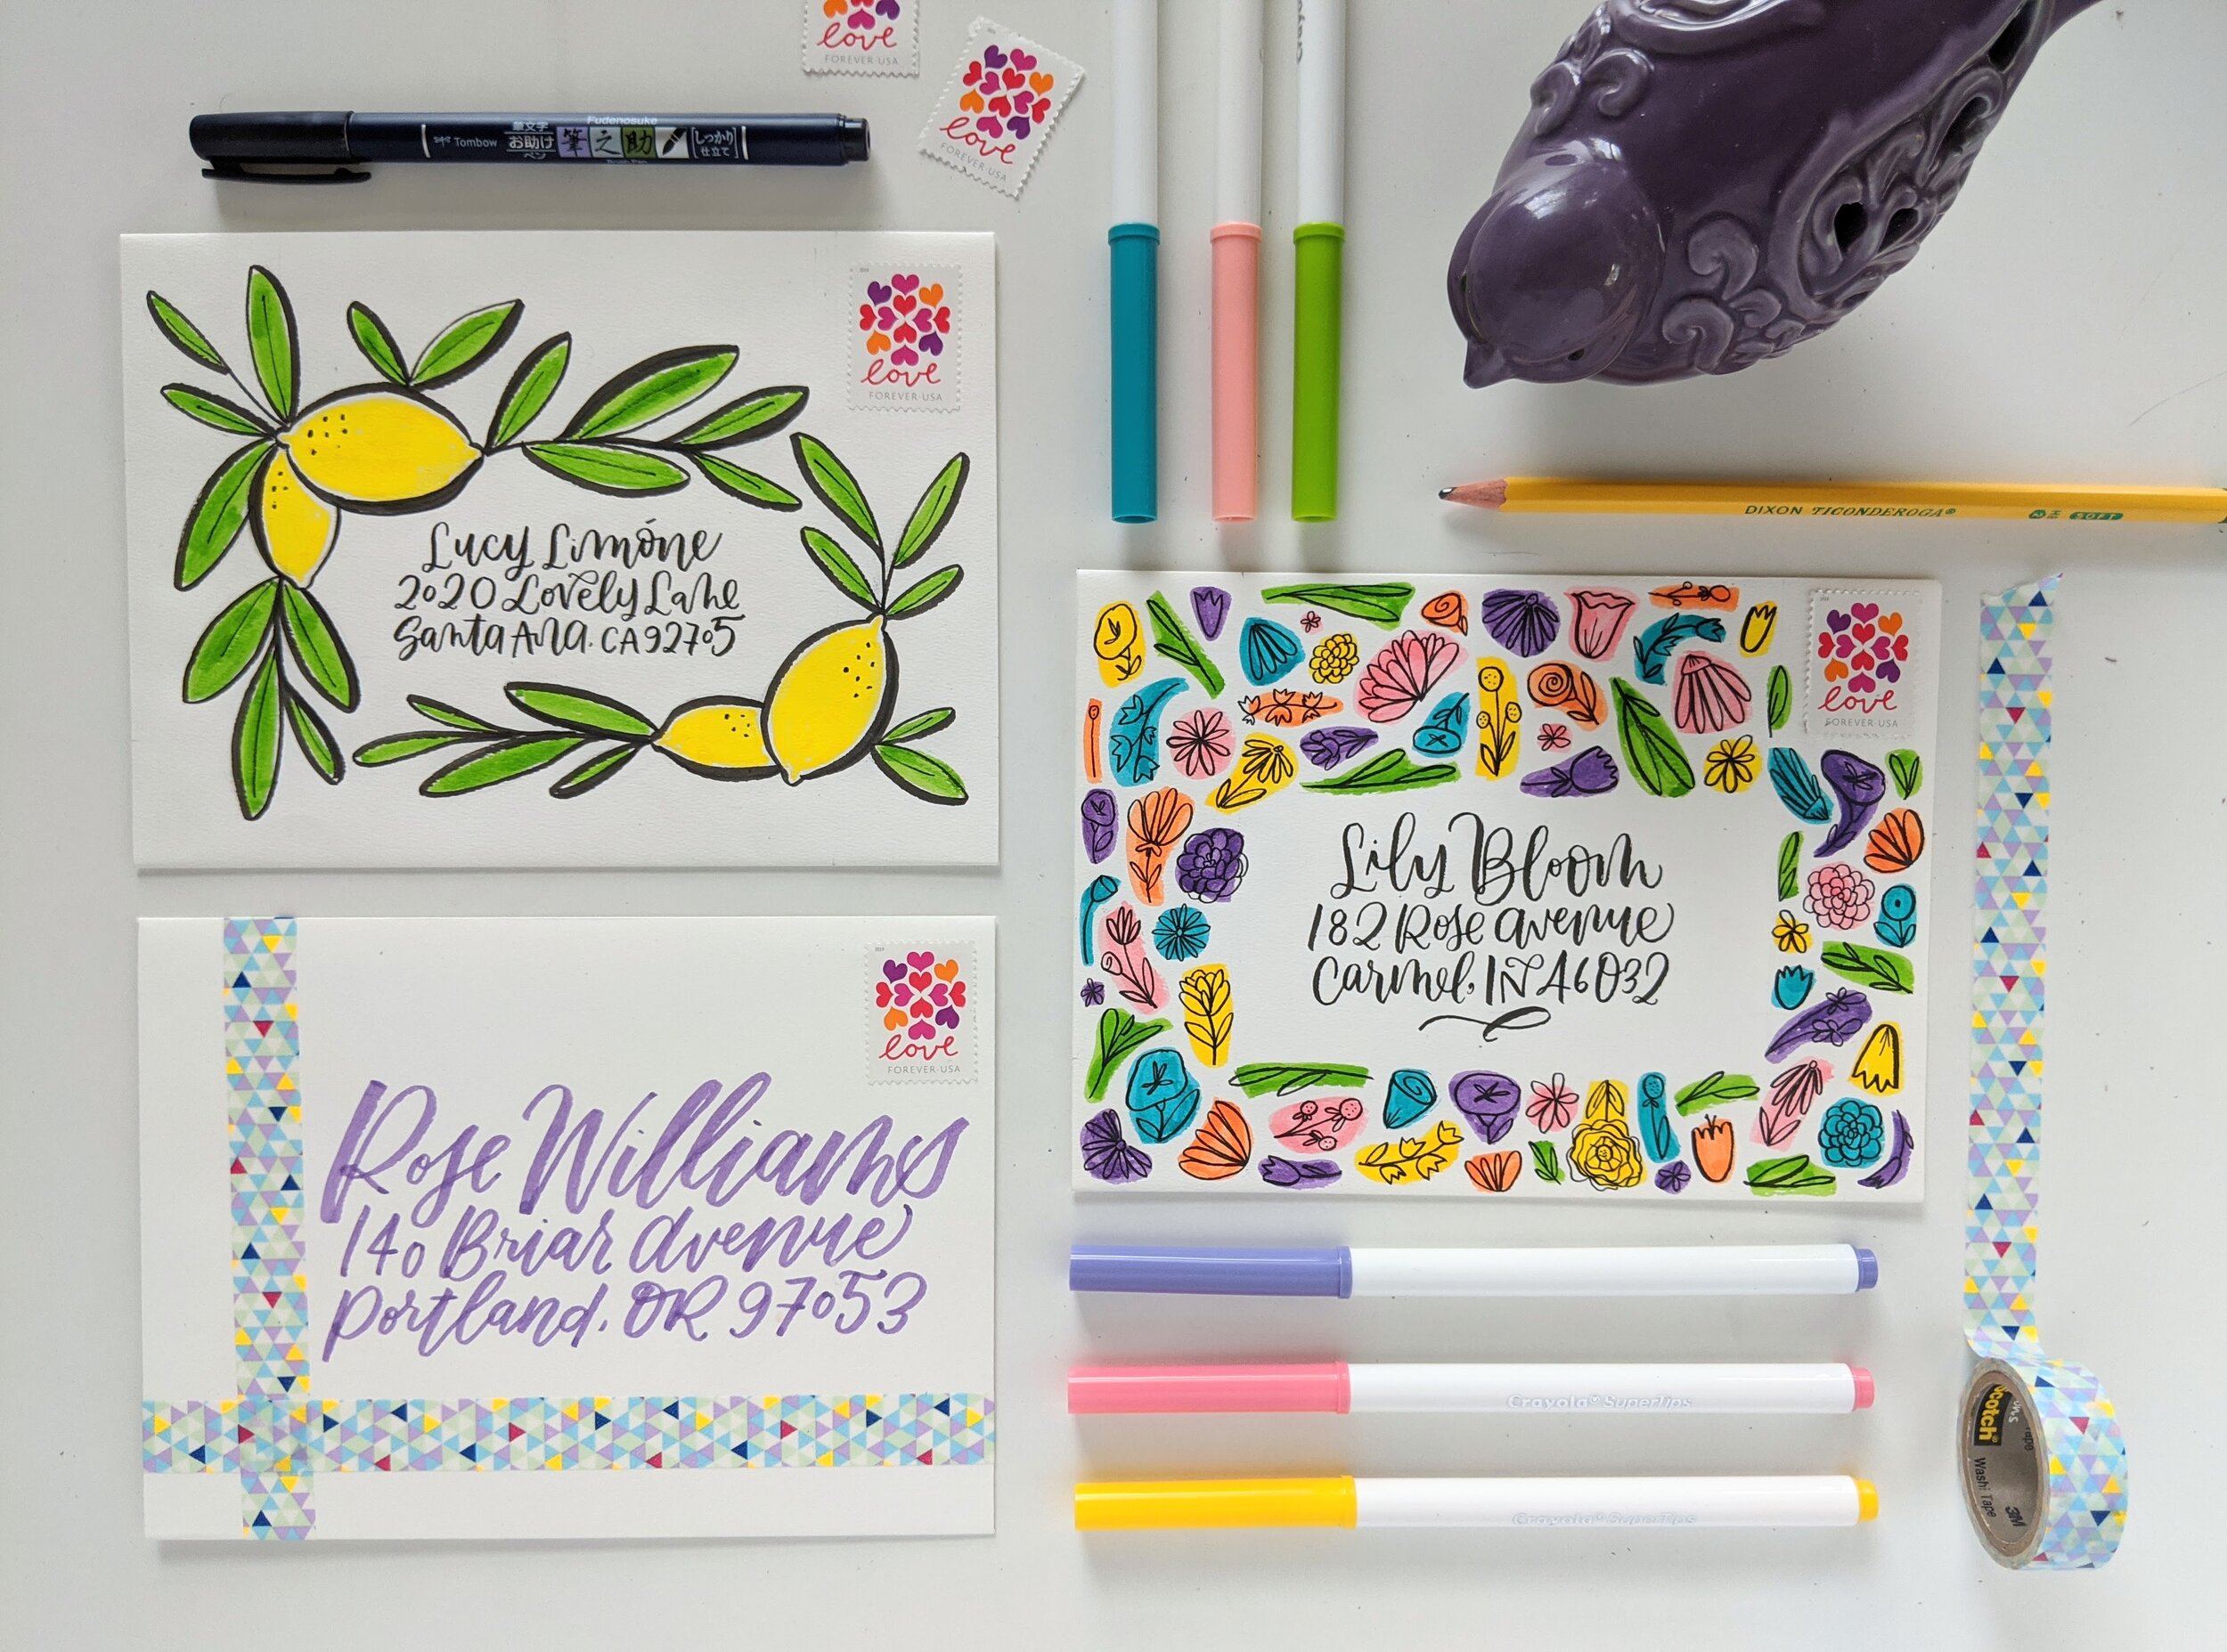 love
FOREVER USA
love
FOREVER USA
Tombow
Fudenosuke
筆文字
お助け
ペン
筆之助
Brush Pen
しっかり
仕立て
love
FOREVER USA
Lucy Limóne
2020 Lovely Lane
Santa Ana. CA 92705
DIXON TICONDEROGA®
2 HB SOFT
love
FOREVER USA
Lily Bloom
182 Rose Avenue
Carmel, IN 46032
love
FOREVER USA
Rose Williams
140 Briar Avenue
Portland, OR 97053
Crayola® SuperTips
Crayola® SuperTips
Scotch
Washi Tape
3M